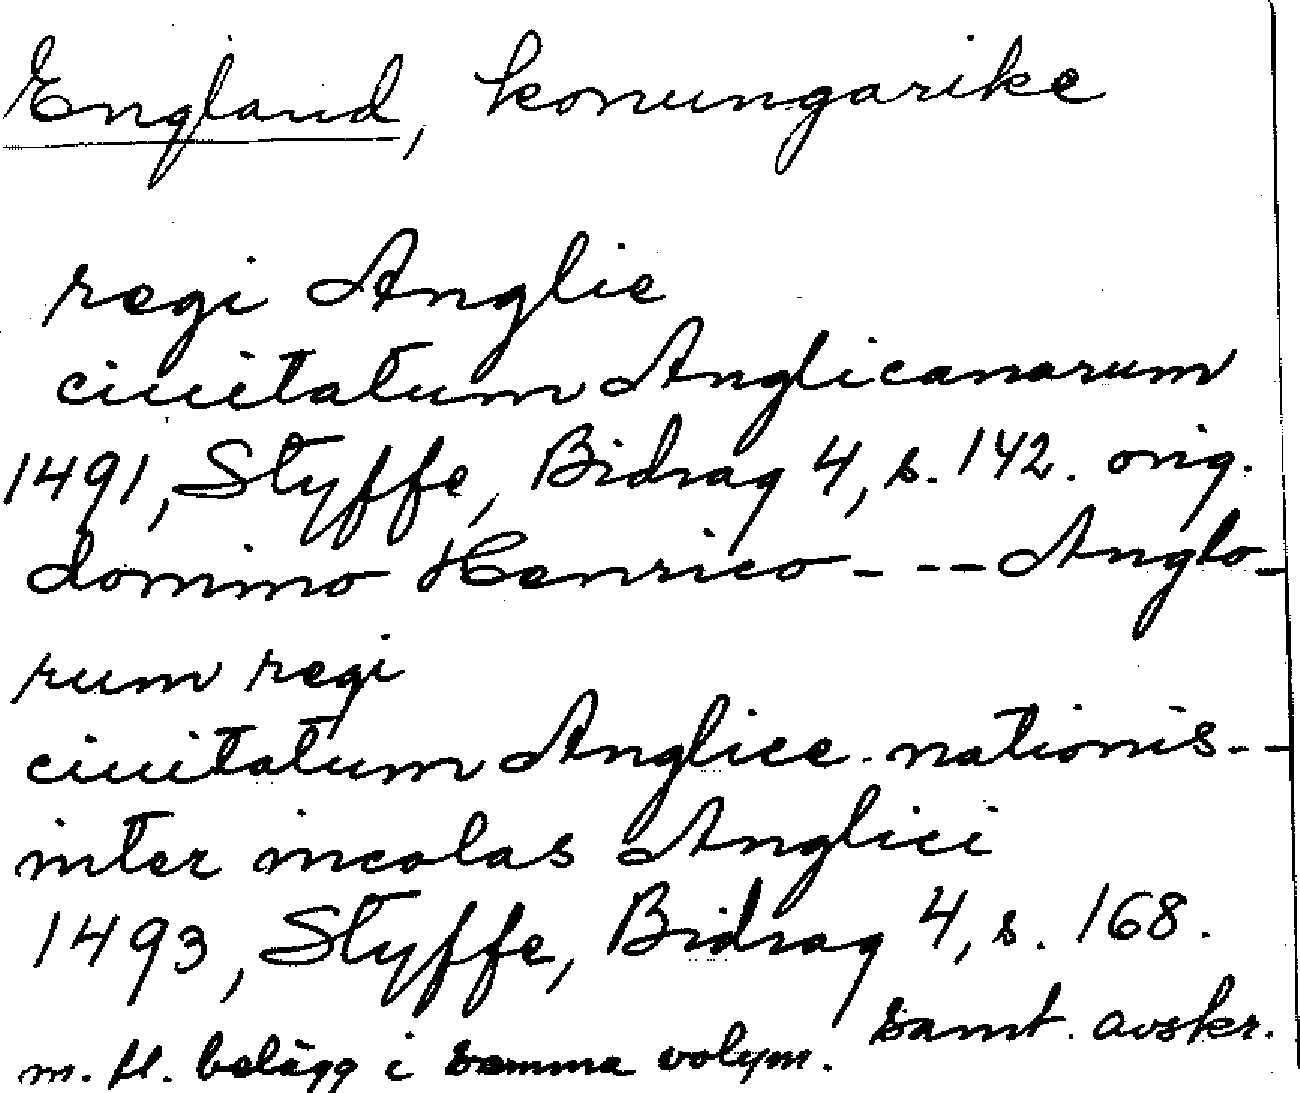 England, konungarike
regi Anglie
ciuitatum Anglicanarum
1491, Styffe, Bidrag 4, s. 142. orig.
domino Henrico - - - Anglo-
rum regi
ciuitatum Anglice nationis - -
inter incolas Anglici
1493, Styffe, Bidrag 4, s. 168.
samt. avskr.
m. fl. belägg i samma volym.